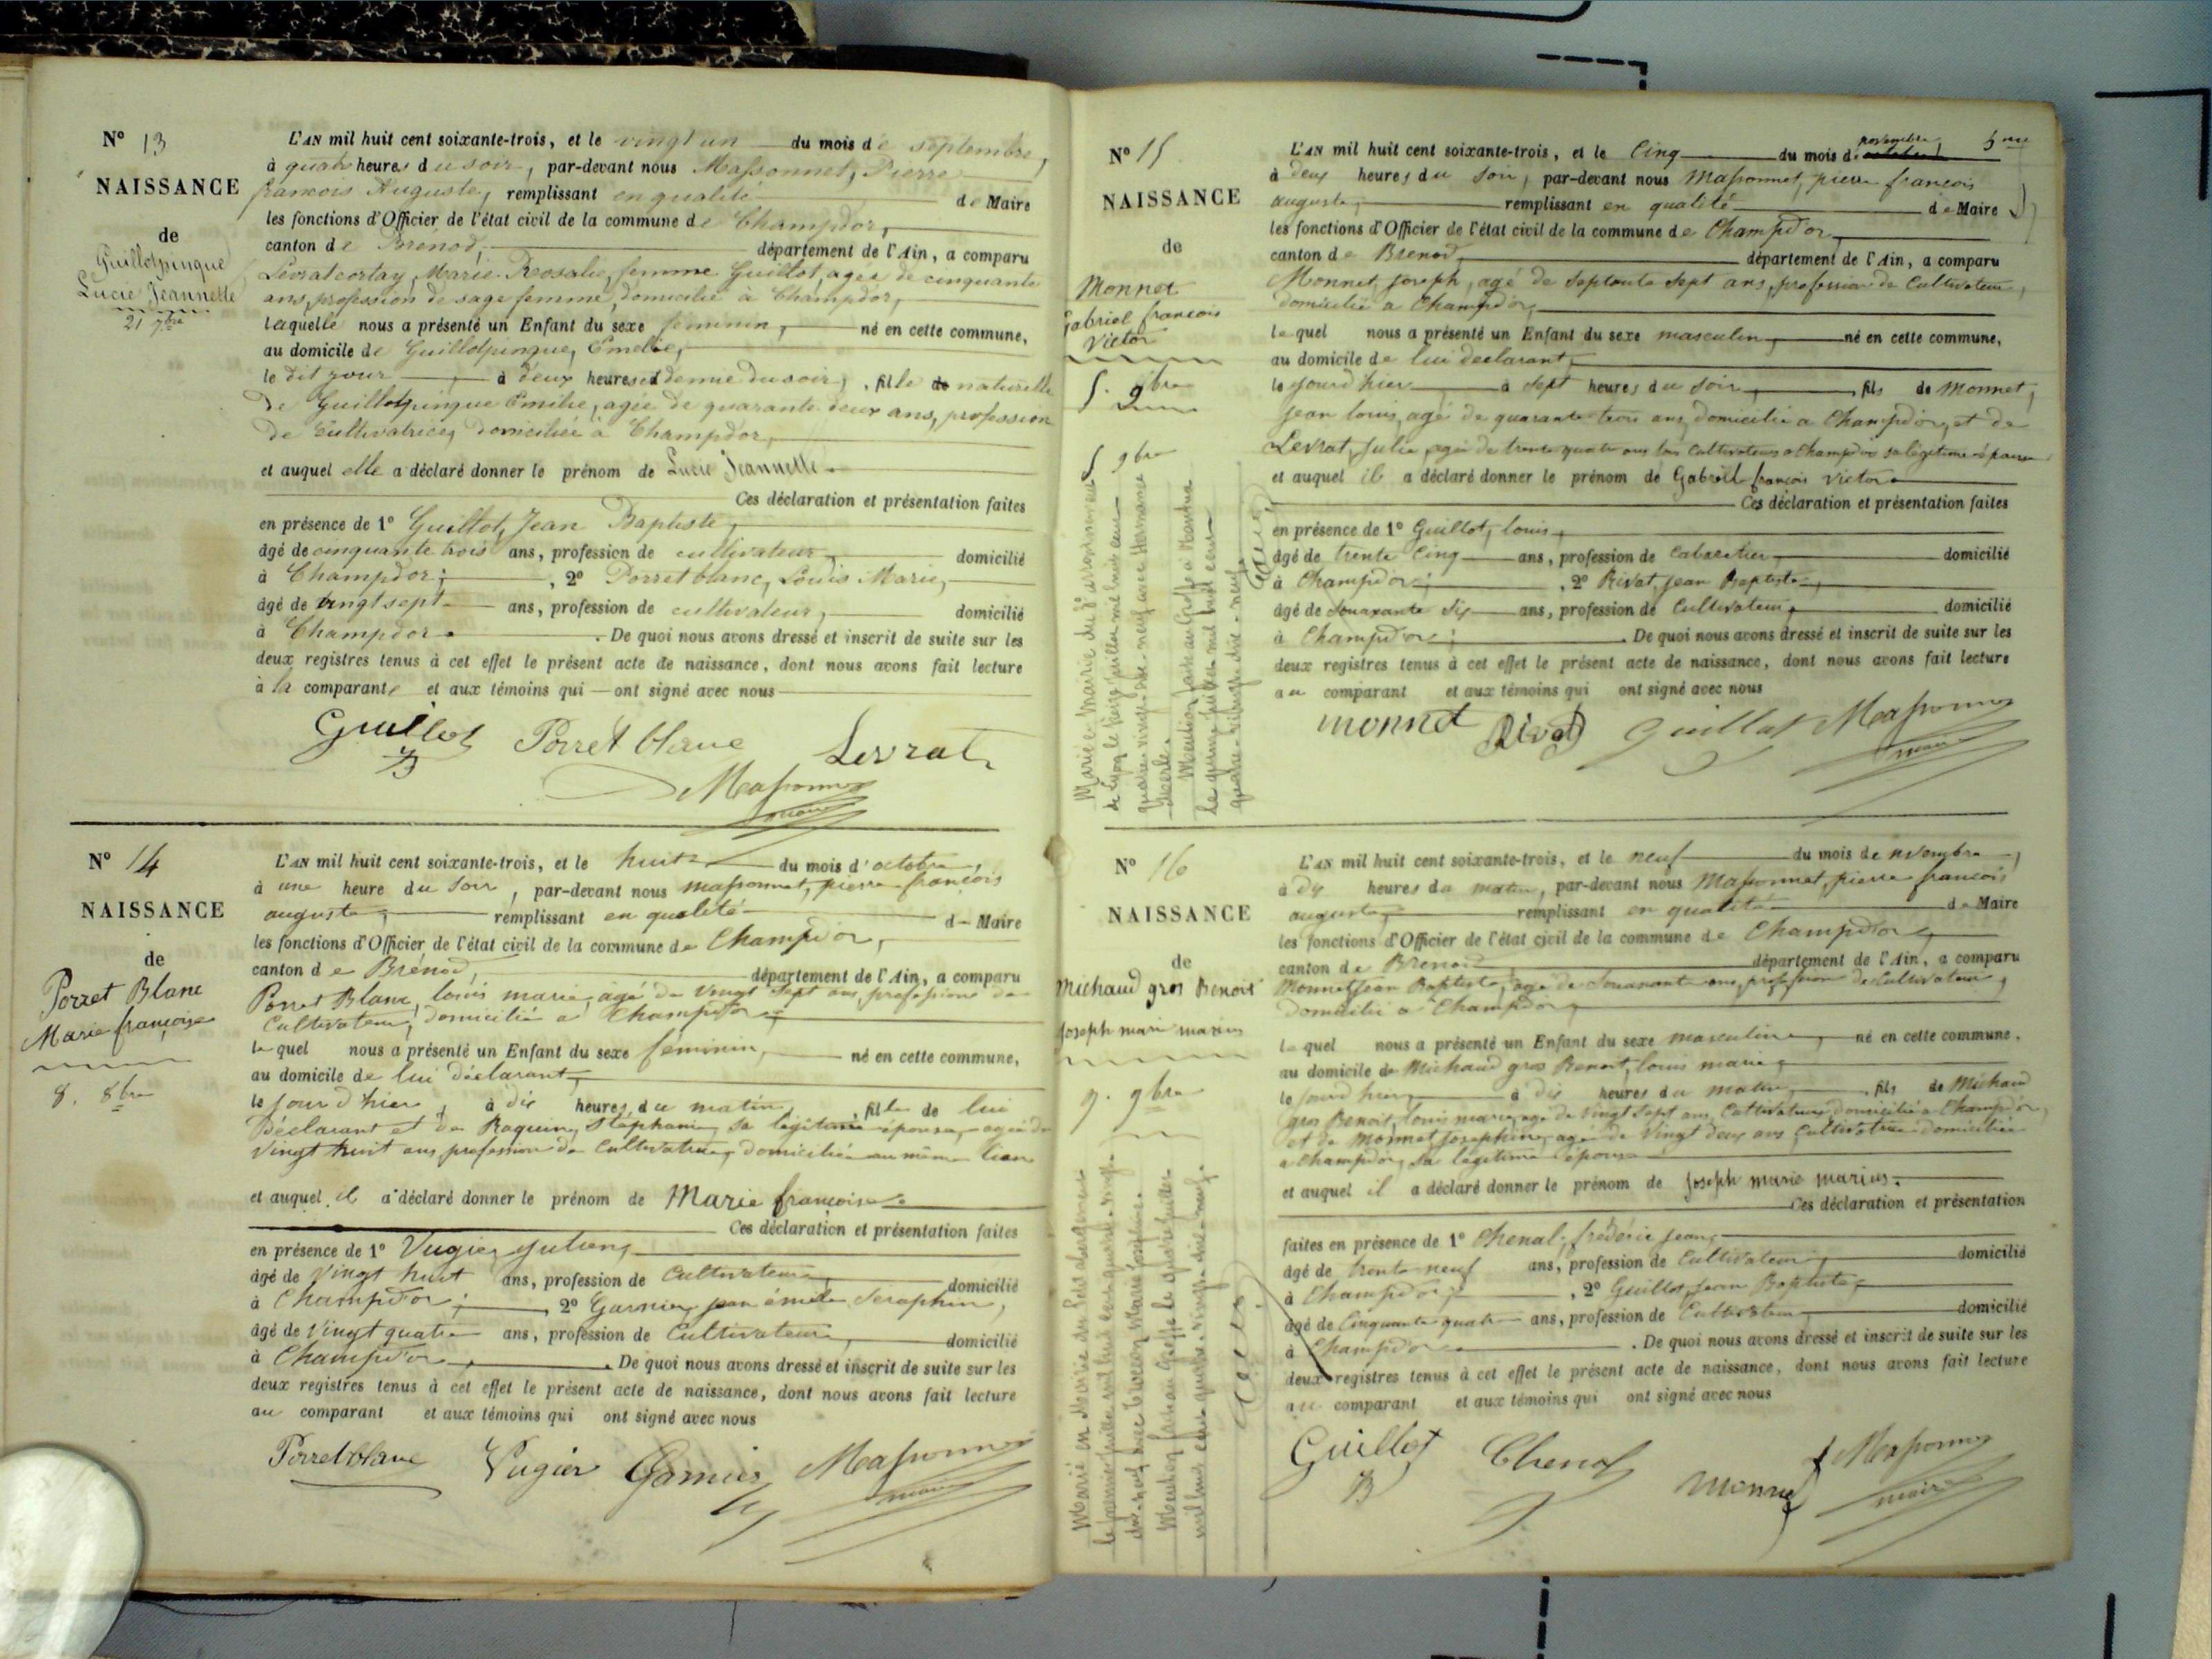 N° 13
NAISSANCE
de
Guillotpinque
Lucie Jeannette
21 7bre
L'AN mil huit cent soixante-trois, et le vingt un du mois de septembre,
à quatre heures du soir, par-devant nous Massonnet, Pierre
françois Auguste, remplissant en qualité de Maire
les fonctions d'Officier de l'état civil de la commune de Champdor,
canton de Brenod, département de l'Ain, a comparu
Levratcortay, Marie Rosalie, femme Guillot, agée de cinquante
ans, profession de sage femme, domicilié à Champdor,
laquelle nous a présenté un Enfant du sexe feminin, né en cette commune,
au domicile de Guillotpinque, Emelie,
le dit jour à deux heures et demie du soir, fille de naturelle
de Guillotpinque Emilie, agée de quarante deux ans, profession
de Cultivatrice, domiciliée à Champdor,
et auquel elle a déclaré donner le prénom de Lucie Jeannette
Ces déclaration et présentation faites
en présence de 1° Guillot, Jean Baptiste,
âgé de cinquante trois ans, profession de cultivateur domicilié
à Champdor; , 2° Porretblanc, Louis Marie,
âgé de vingt sept ans, profession de cultivateur, domicilié
à Champdor . De quoi nous avons dressé et inscrit de suite sur les
deux registres tenus à cet effet le présent acte de naissance, dont nous avons fait lecture
à la comparante et aux témoins qui ont signé avec nous
Guillot Porret blanc Levrat
JB
Massonnet
maire
N° 14
NAISSANCE
de
Porret Blanc
Marie françoise
8. 8bre
L'AN mil huit cent soixante-trois, et le huit du mois d'octobre,
à une heure du soir, par-devant nous massonnet, pierre françois
auguste, remplissant en qualité de Maire
les fonctions d'Officier de l'état civil de la commune de Champdor,
canton de Brénod, département de l'Ain, a comparu
Porret Blanc, louis marie, agé de vingt sept ans, profession de
Cultivateur, domicilié a Champdor
lequel nous a présenté un Enfant du sexe féminin, né en cette commune,
au domicile de lui déclarant,
le jour d'hier, à dix heures du matin, fille de lui
Déclarant et de Raquin, Stéphanie, sa légitime épouse, agée de
Vingt huit ans profession de Cultivatrice, domiciliée au même lieu
et auquel il a déclaré donner le prénom de Marie françoise.
Ces déclaration et présentation faites
en présence de 1° Vugier, Julien,
âgé de vingt huit ans, profession de Cultivateur, domicilié
à Champdor; , 2° Garnier, jean émile Seraphin,
âgé de Vingt quatre ans, profession de Cultivateur, domicilié
à Champdor, . De quoi nous avons dressé et inscrit de suite sur les
deux registres tenus à cet effet le présent acte de naissance, dont nous avons fait lecture
au comparant et aux témoins qui ont signé avec nous
Porretblanc Vugier Garnier Massonnet
maire
N° 15
NAISSANCE
de
Monnet
Gabriel françois
Victor
5. 9bre
5 9bre
Marié en Mairie du arrondissement
de Lyon le treize juillet mil huit cent
quatre-vingt-dix-neuf avec Hermance
Mention faite au Greffe à Nantua
le quinze juillet mil huit cent
quatre-vingt-dix-neuf
L'AN mil huit cent soixante-trois, et le Cinq du mois de novembre
à deux heures du soir, par-devant nous Massonnet, pierre françois
auguste, remplissant en qualité de Maire
les fonctions d'Officier de l'état civil de la commune de Champdor,
canton de Brenod, département de l'Ain, a comparu
Monnet, joseph, agé de Septante Sept ans, profession de Cultivateur,
domicilié a Champdor,
lequel nous a présenté un Enfant du sexe masculin, né en cette commune,
au domicile de lui declarant,
le jourd'hier à sept heures du soir, fils de Monnet,
jean louis, agé de quarante trois ans, domicilié a Champdor, et de
Levrat, Julie, agée de trente quatre ans tous Cultivateurs a Champdor sa légitime épouse
et auquel il a déclaré donner le prénom de Gabriel françois Victor
Ces déclaration et présentation faites
en présence de 1° Guillot, louis,
âgé de trente Cinq ans, profession de Cabaretier, domicilié
à Champdor; , 2° Rivat, jean Baptiste,
âgé de Souaxante Six ans, profession de Cultivateur, domicilié
à Champdor; . De quoi nous avons dressé et inscrit de suite sur les
deux registres tenus à cet effet le présent acte de naissance, dont nous avons fait lecture
au comparant et aux témoins qui ont signé avec nous
monnet Rivat Guillot Massonnet
maire
N° 16
NAISSANCE
de
Michaud gros Benoit
Joseph marie marius
9. 9bre
Marié en Mairie du
le premier juillet mil huit cent quatre-vingt-
dix-neuf avec Marie Joséphine.
Mention faite au Greffe le quatre juillet
mil huit cent quatre-vingt-dix-neuf.
L'AN mil huit cent soixante-trois, et le neuf du mois de novembre,
à dix heures du matin, par-devant nous Massonnet, pierre françois
auguste, remplissant en qualité de Maire
les fonctions d'Officier de l'état civil de la commune de Champdor,
canton de Brenod département de l'Ain, a comparu
Monnet Jean Baptiste, agé de Souaxante ans, profession de Cultivateur,
domicilié a Champdor,
lequel nous a présenté un Enfant du sexe masculin, né en cette commune,
au domicile de Michaud gros Benoit, louis marie,
le jourd'hier, à dix heures du matin, fils de Michaud
gros Benoit, louis marie, agé de vingt sept ans, Cultivateur, domicilié a Champdor,
et de Monnet, Josephine, agée de Vingt deux ans Cultivatrice domiciliée
a Champdor, sa légitime épouse
et auquel il a déclaré donner le prénom de Joseph marie marius.
Ces déclaration et présentation
faites en présence de 1° Chenal, frédéric jean,
âgé de trente neuf ans, profession de Cultivateur, domicilié
à Champdor, , 2° Guillot, Jean Baptiste,
âgé de Cinquante quatre ans, profession de Cultivateur domicilié
à Champdor . De quoi nous avons dressé et inscrit de suite sur les
deux registres tenus à cet effet le présent acte de naissance, dont nous avons fait lecture
au comparant et aux témoins qui ont signé avec nous
Guillot Chenal Monnet Massonnet
B maire